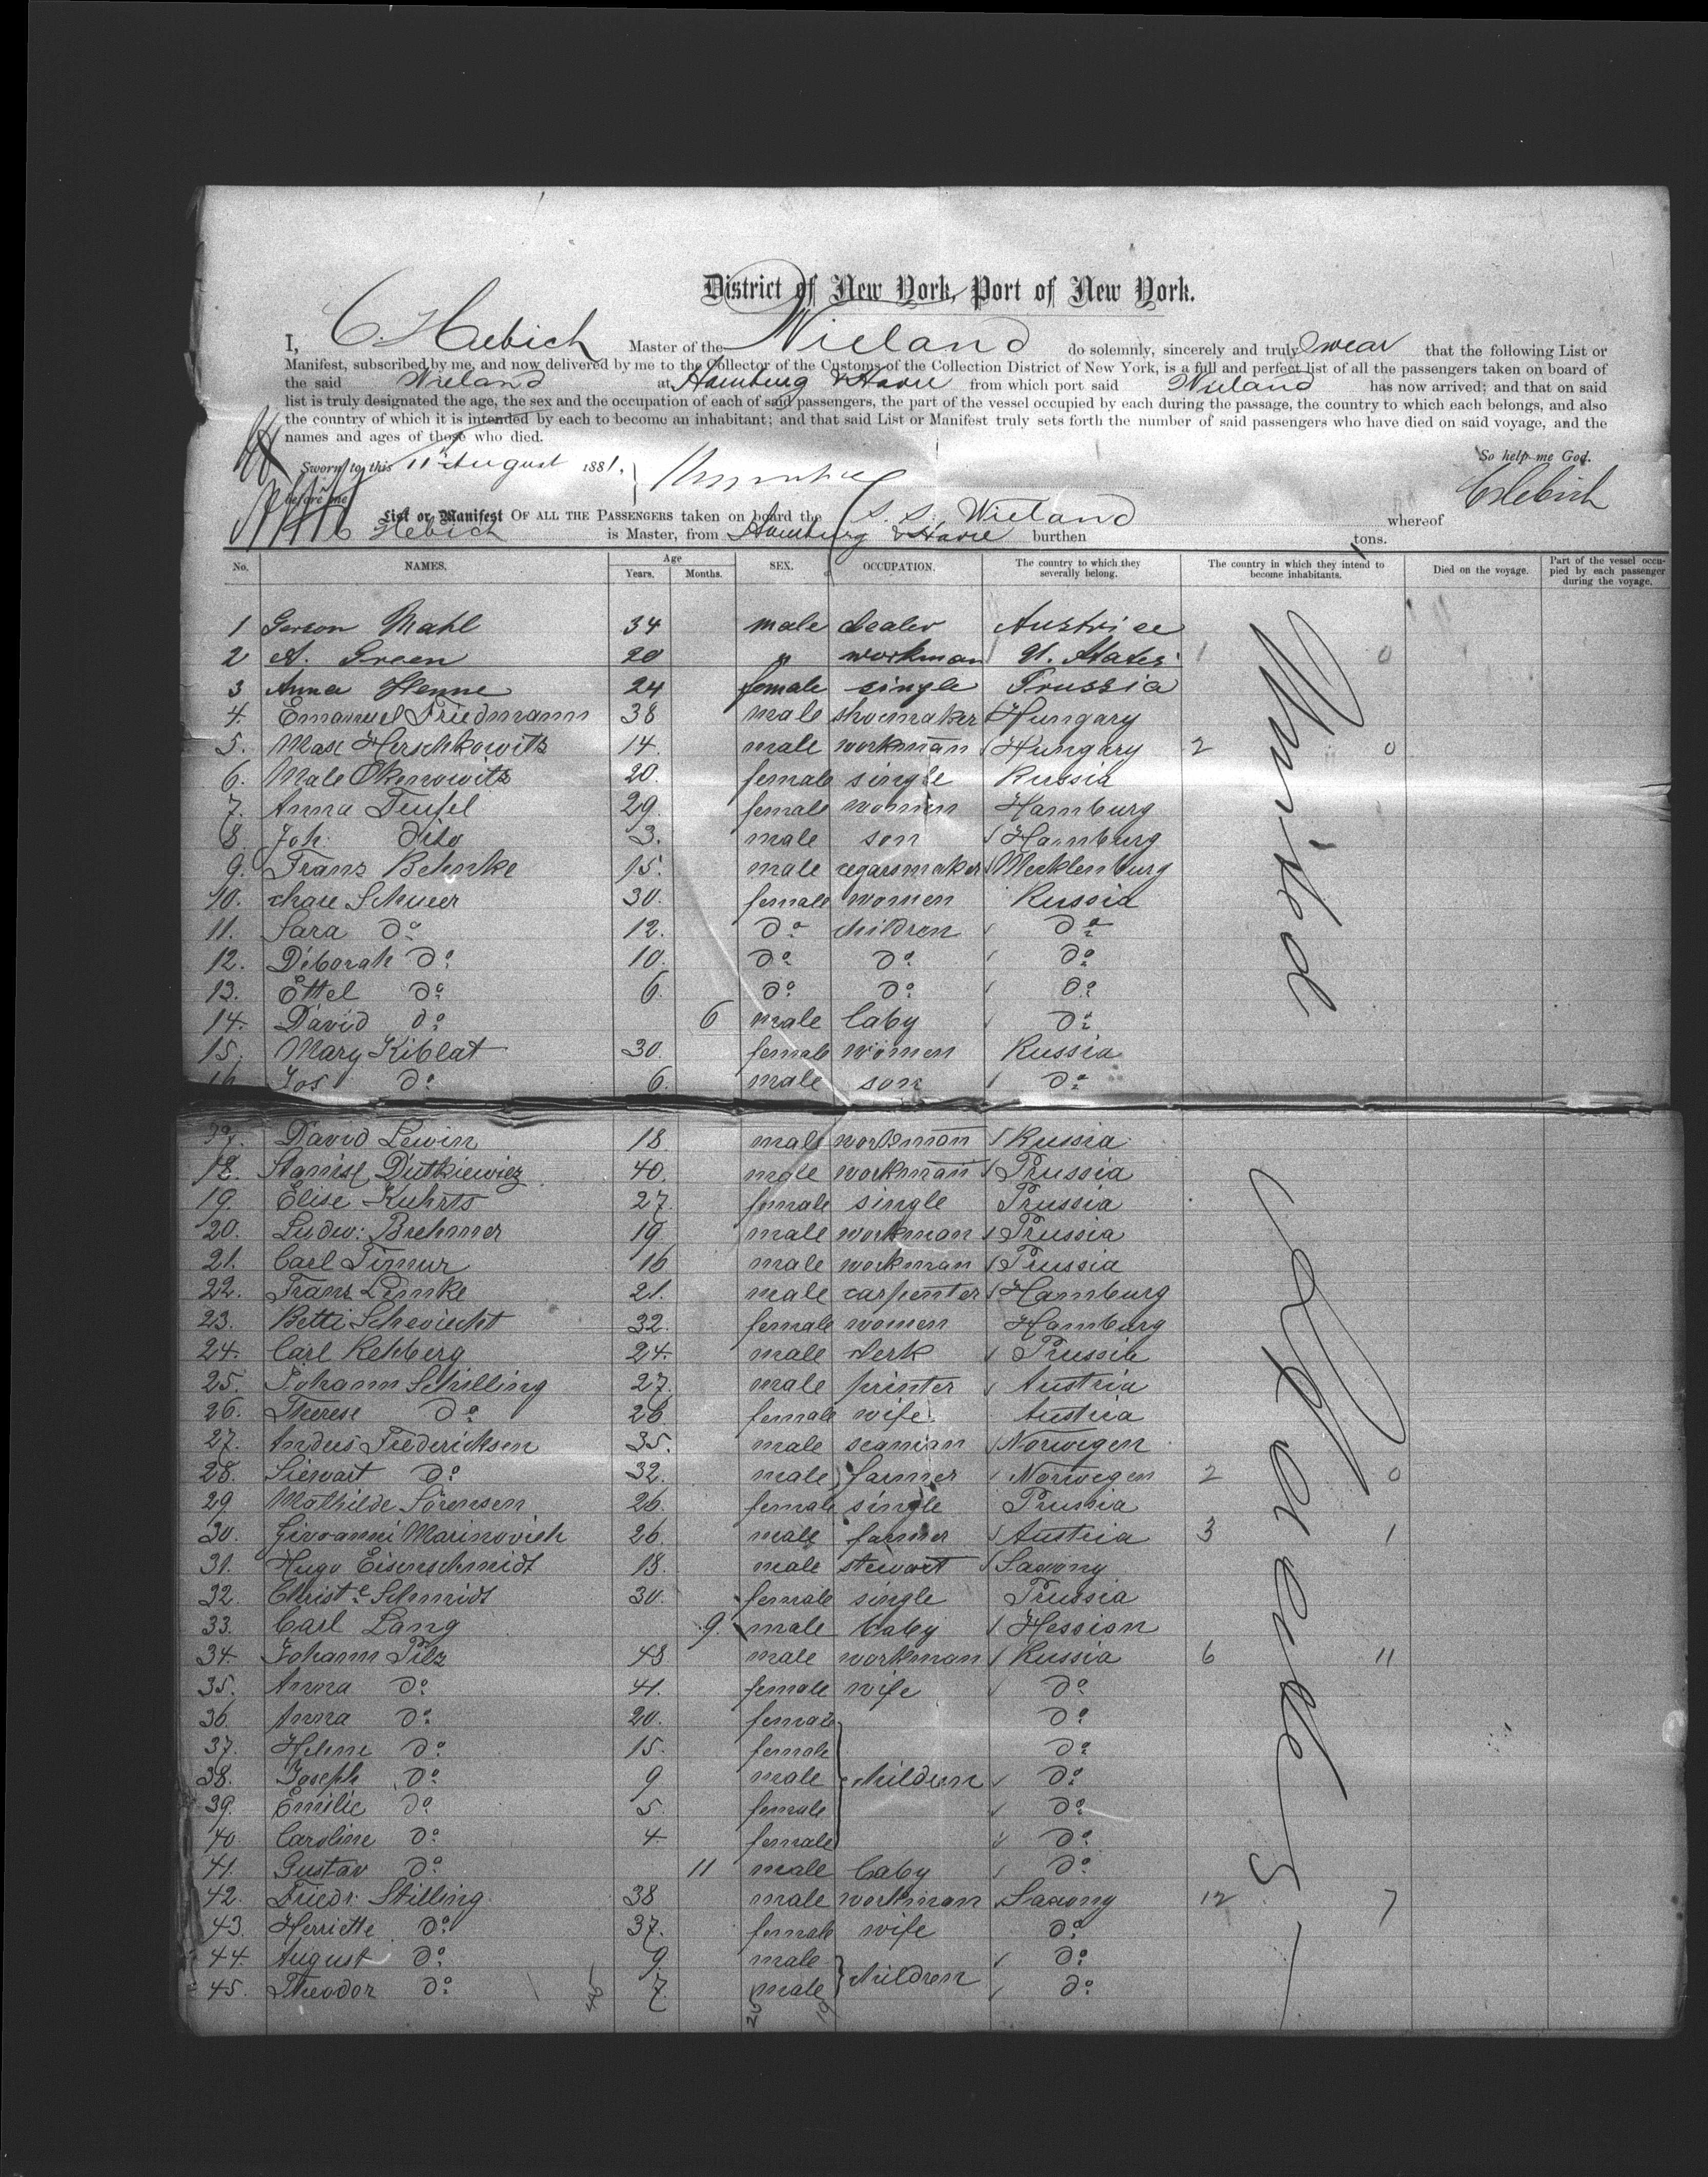 District of New York, Port of New York.
I, C. Hebich Master of the Wieland do solemnly, sincerely and truly swear that the following List or
Manifest, subscribed by me, and now delivered by me to the Collector of the Customs of the Collection District of New York, is a full and perfect list of all the passengers taken on board of
the said Wieland at Hamburg & Havre from which port said Wieland has now arrived; and that on said
list is truly designated the age, the sex and the occupation of each of said passengers, the part of the vessel occupied by each during the passage, the country to which each belongs, and also
the country of which it is intended by each to become an inhabitant; and that said List or Manifest truly sets forth the number of said passengers who have died on said voyage, and the
names and ages of those who died.
So help me God.
Sworn to this 11th August 1881,
before me
C Hebich
List or Manifest OF ALL THE PASSENGERS taken on board the S. S. Wieland whereof
Hebich is Master, from Hamburg & Havre burthen tons.
No. NAMES. Age Years. Months. SEX. OCCUPATION. The country to which they severally belong. The country in which they intend to become inhabitants. Died on the voyage. Part of the vessel occupied by each passenger during the voyage.
1 Gerson Mahl 34 male dealer Austria
2 A. Green 20 " workman U. States 1 0
3 Anna Henne 24 female single Prussia
4. Emanuel Friedmann 38 male shoemaker Hungary
5. Max Herschkowitz 14. male workman Hungary 2 0
6. Male Okenowitz 20. female single Russia
7. Anna Teufel 29. female women Hamburg
8. Joh. dito 3. male son Hamburg
9. Franz Behnke 15. male cegarsmaker Mecklenburg
10. Schuer 30. female women Russia
11. Sara do 12. do children do
12. Deborah do 10. do do do
13. Ettel do 6. do do do
14. David do 6 male baby do
15. Mary Kiblat 30. female women Russia
16 Jos do 6. male son do
17. David Lewin 18 male workman Russia
18. Stanisl Dutkiewicz 40. male workman Prussia
19. Elise Kuhrts 27. female single Prussia
20. Ludw: Brehmer 19. male workman Prussia
21. Carl Timur 16 male workman Prussia
22. Franz Lemke 21. male carpenter Hamburg
23. Betti 32. female women Hamburg
24. Carl Rehberg 24. male clerk Prussia
25. Johann Schilling 27. male printer Austria
26. Therese do 26. female wife Austria
27. Andres Frederiksen 35. male seaman Norwegen
28. Siewart do 32. male farmer Norwegen 2 0
29 Mathilde Sörensen 26. female single Prussia
30. Giovanni Marinovich 26. male farmer Austria 3 1
31. Hugo Eisenschmidt 18. male stewart Saxony
32. Christe Schmidt 30. female single Prussia
33. Carl Lang 9. male baby Hessian
34. Johann Pilz 48 male workman Russia 6 11
35. Anna do 41. female wife do
36. Anna do 20. female do
37. Helene do 15. female do
38. Joseph do 9 male children do
39. Emilie do 5. female do
40. Caroline do 4. female do
41. Gustav do 11 male baby do
42. Friedr. Stilling. 38 male workman Saxony 12 7
43. Henriette do 37. female wife do
44. August do 9. male do
45. Theodor do 7. male children do
United
States